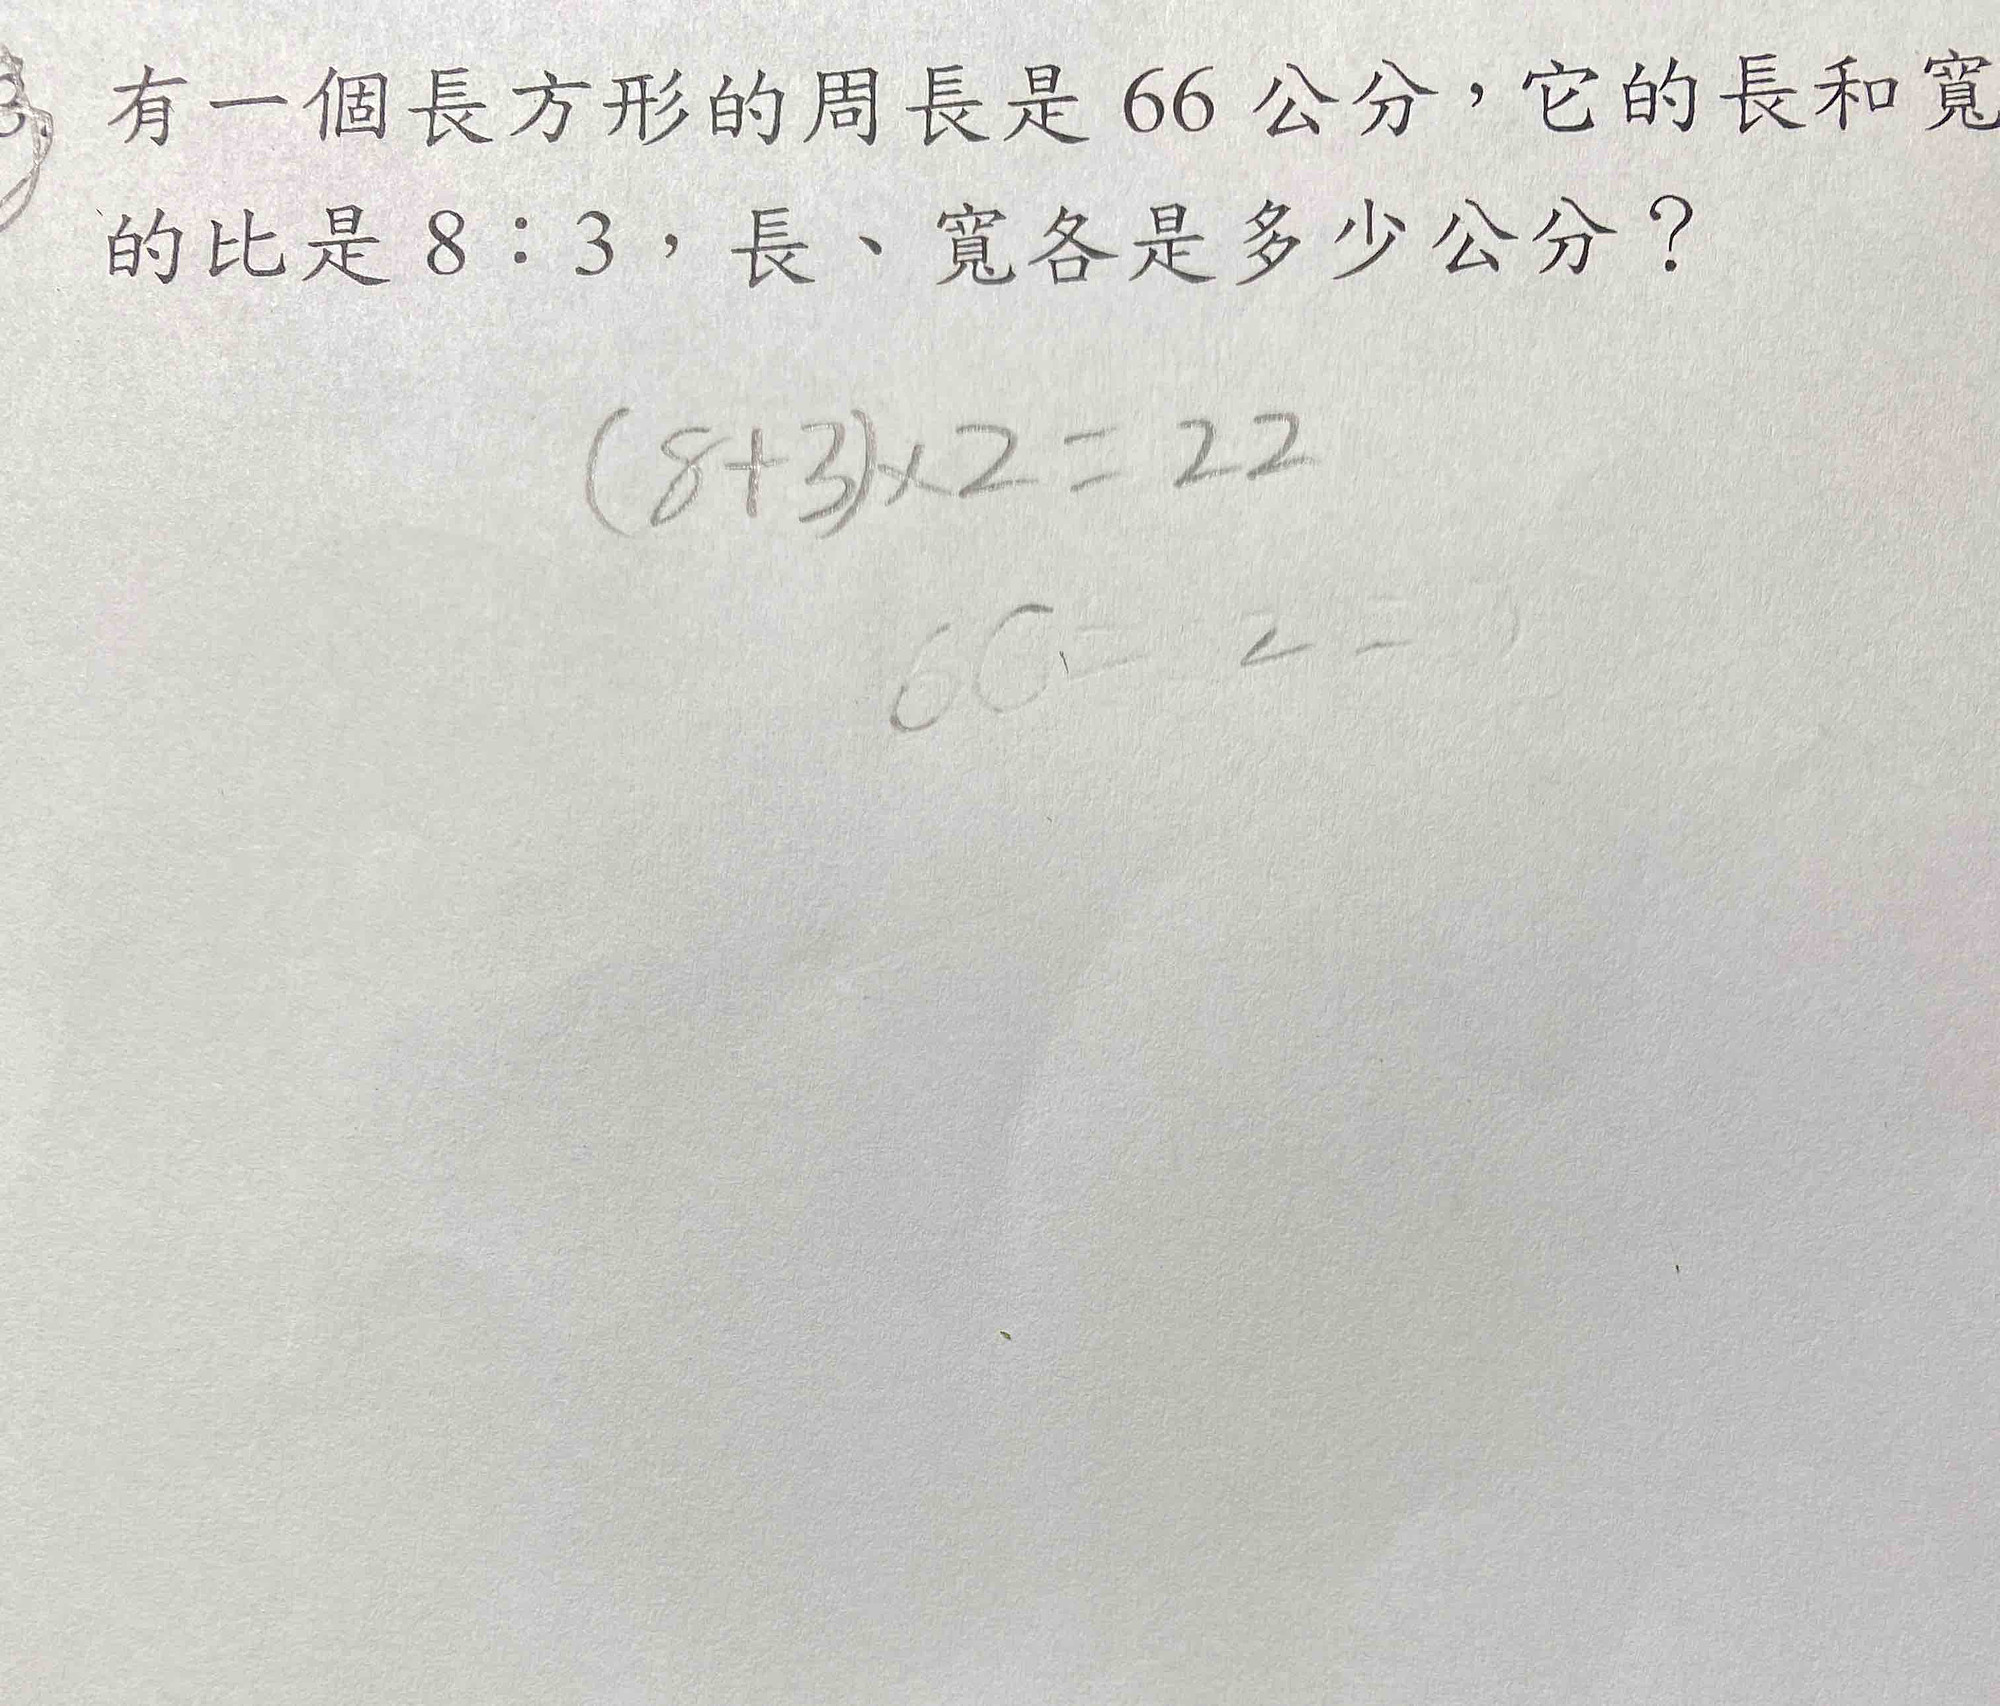 有一個長方形的周長是 66 公分，它的長和寬
的比是 8：3，長、寬各是多少公分？
(8+3)×2=22